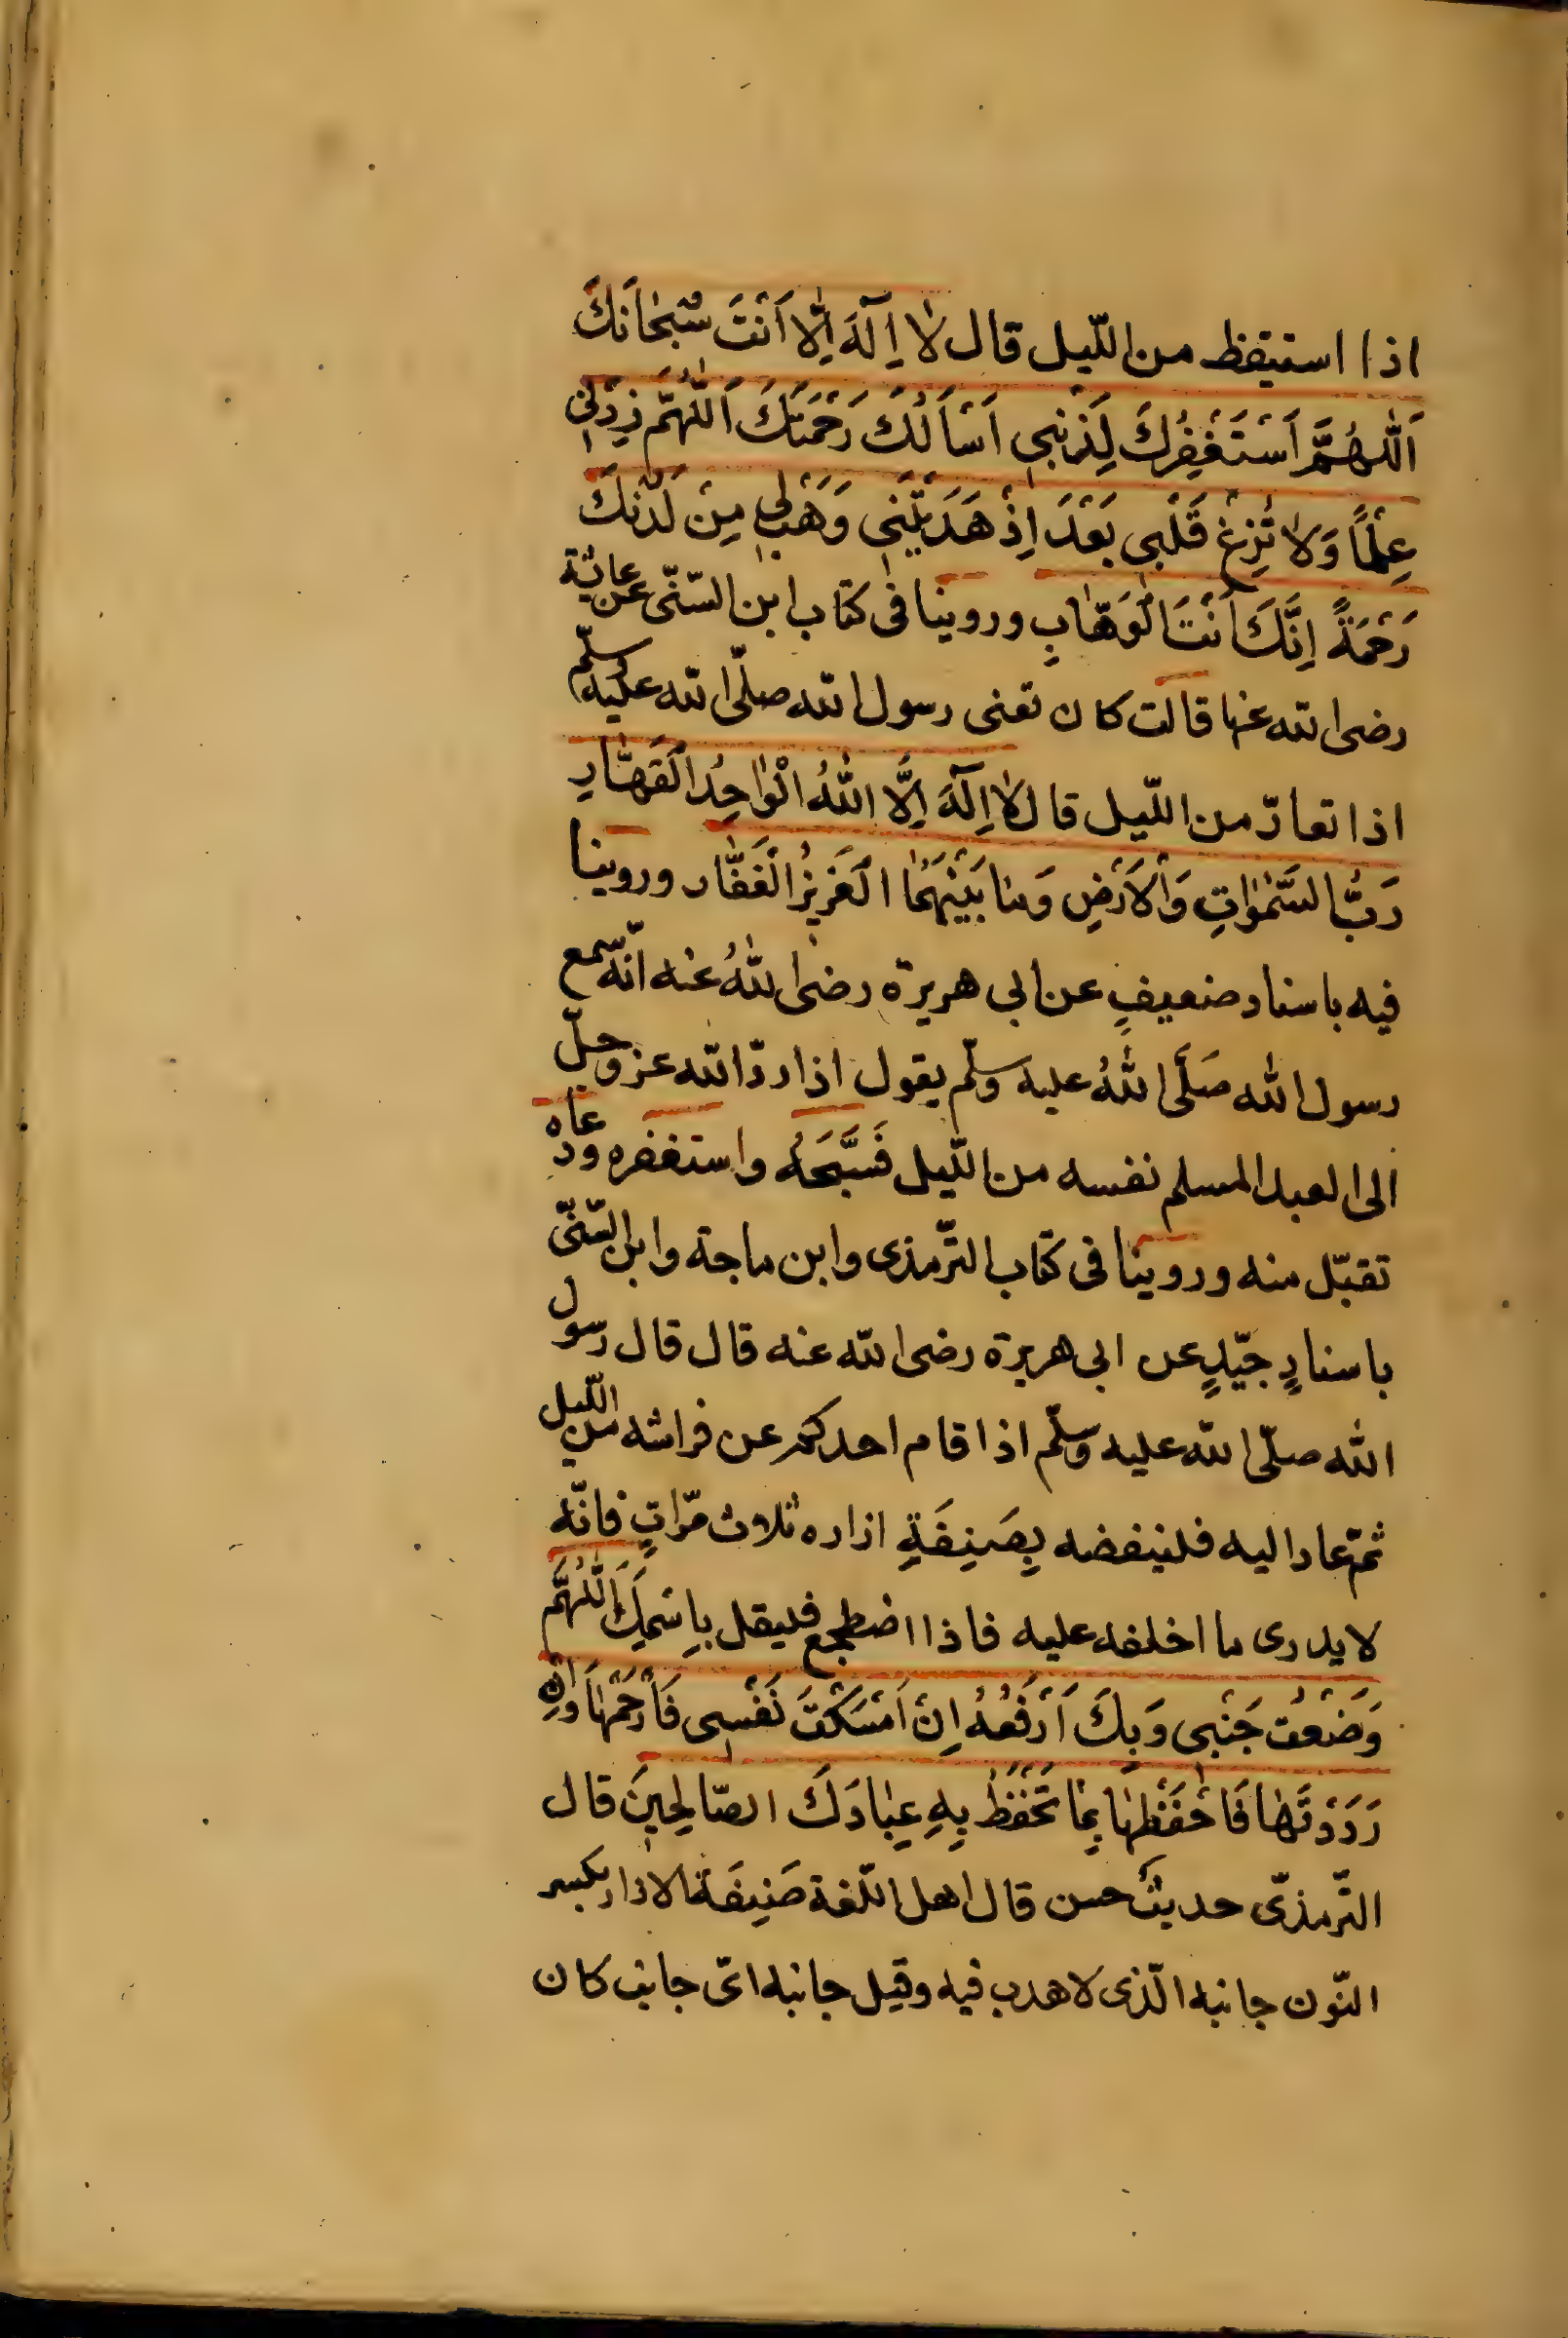 اذا استيقظ من اللّيل قال لَا اِلٰهَ اِلَّا اَنْتَ سُبْحَانَكَ
اَللّٰهُمَّ اَسْتَغْفِرُكَ لِذَنْبِي اَسْاَلُكَ رَحْمَتَكَ اَللّٰهُمَّ زِدْنِي
عِلْمًا وَلَا تُزِغْ قَلْبِي بَعْدَ اِذْ هَدَيْتَنِي وَهَبْ لِي مِنْ لَدُنْكَ
رَحْمَةً اِنَّكَ اَنْتَ الْوَهَّابِ وروينا فى كتاب ابن السّنّى عن عائشة
رضى الله عنها قالت كان تعنى رسول الله صلّى الله عليه وسلّم
اذا تعارّ من اللّيل قال لَا اِلٰهَ اِلَّا اللّٰهُ الْوَاحِدُ الْقَهَّارِ
رَبُّ السَّمٰوَاتِ وَالْاَرْضِ وَمَا بَيْنَهُمَا الْعَزِيزُ الْغَفَّار وروينا
فيه باسناد ضعيفٍ عن ابى هريرة رضى اللهُ عنه انّه سمع
رسول الله صَلَّى اللهُ عليه وسلّم يقول اذا ردّ الله عز وجلّ
الى العبد المسلم نفسه من اللّيل فَسَبَّحَهُ واستغفره ودعاه
تقبّل منه وروينا فى كتاب التّرمذى وابن ماجة وابن السّنّى
باسنادٍ جيّدٍ عن ابى هريرة رضى الله عنه قال قال رسول
الله صلّى الله عليه وسلّم اذا قام احدكم عن فراشه من اللّيل
ثمّ عاد اليه فلينفضه بِصَنِفَةِ ازاره ثلاث مرّاتٍ فانّه
لا يدرى ما اخلفه عليه فاذا اضطجع فليقل بِاسْمِكَ اللّٰهُمَّ
وَضَعْتُ جَنْبِي وَبِكَ اَرْفَعُهُ اِنْ اَمْسَكْتَ نَفْسِي فَارْحَمْهَا وَاِنْ
رَدَدْتَهَا فَاحْفَظْهَا بِمَا تَحْفَظُ بِهِ عِبَادَكَ الصَّالِحِينَ قال
التّرمذىّ حديث حسن قال اهل اللّغة صَنِفَة الازار بكسر
النّون جانبه الّذى لا هدب فيه وقيل جانبه اىّ جانب كان